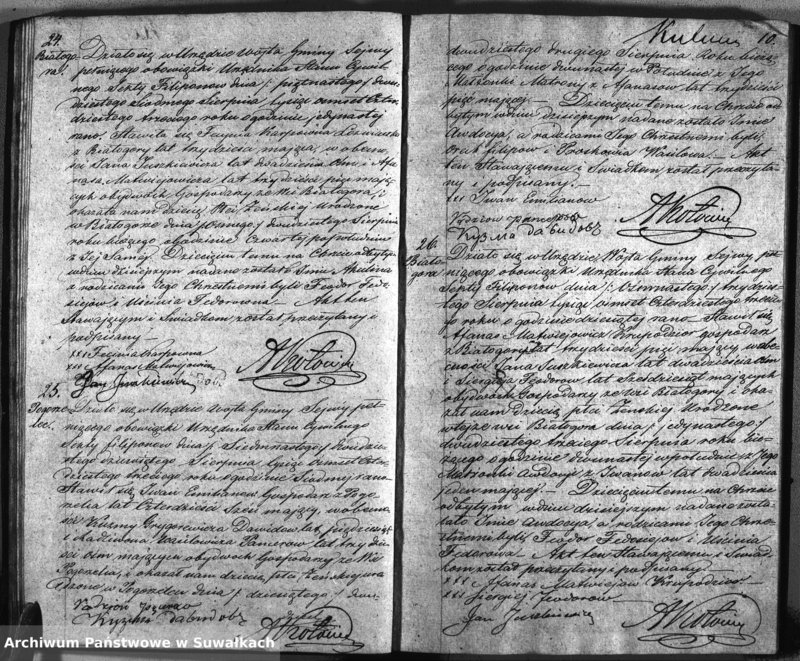 24.
Białogó
ra.
Działo się w Urzędzie Wójta Gminy Sejwy
pełniącego obowiązki Urzędnika Stanu Cywil
nego Sekty Filiponów dnia /: piętnastego / dwu
dziestego siódmego Sierpnia tysiąc osmset Czter
dziestego trzeciego roku o godzinie jedynastej
rano. Stawiła się
z Białogóry lat trzydzieści mająca, w obecno
ści Jana Juszkiewicza lat dwadzieścia Osm i Afa
nasa Matwiejowicza lat trzydzieści pięć mają
cych obydwóch Gospodarzy ze Wsi Białogóra /
okazała nam dziecię Płci Żeńskiej Urodzone
w Białogórze dnia /: / dwudziestego Sierpnia
roku bieżącego o godzinie Czwartej po południu
z Jej Samej. Dziecięciu temu na Chrzcie odbytym
w dniu dzisiejszym nadane zostało Imie Akulina
a rodzicami Jego Chrzestnemi byli Fiedor Fie
dziejów i Federowna. — Akt ten
Stawającym i Świadkom został przeczytany i
podpisany —
XXX Karpowna
XXX Afanas Matwiejowicz
Jan Juszkiewicz
25.
Pogorze
lec.
Działo się w Urzędzie Wójta Gminy Sejwy peł
niącego obowiązki Urzędnika Stanu Cywilnego
Sekty Filiponów dnia /: Siedmnastego / dwudzie
stego dziewiątego Sierpnia tysiąc Osmset Czter
dziestego trzeciego roku o godzinie Siódmej rano
Stawił się Iwan Emilianow Gospodarz z Pogo
rzelca lat Czterdzieści Sześć mający, w obecno
ści Kuzmy Grygorewicza Dawidow lat pięćdziesiąt
i Wasilowicza lat trzydzie
ści Osm mających obydwóch Gospodarzy ze Wsi
Pogorzelca, i okazał nam dziecię płci Żeńskiej uro
dzone w Pogorzelcu dnia /: dziesiątego / dwu
Кузма Давыдовъ
10.
dwudziestego drugiego Sierpnia Roku bieżą
cego o godzinie dwunastej w Południe z Jego
Małżonki Matrony z Afanasow lat trzydzieści
pięć mającej. — Dziecięciu temu na Chrzcie od
bytym w dniu dzisiejszym nadane zostało Imie
Awdocya, a rodzicami Jego Chrzestnemi byli
Filipow i Proskowia Wasilowa. — Akt
ten Stawającemu i Świadkom został przeczyta
ny i podpisany. —
XXX Iwan Emilianow
Кузма Давыдовъ
26.
Biało
góra.
Działo się w Urzędzie Wójta Gminy Sejwy peł
niącego obowiązki Urzędnika Stanu Cywilnego
Sekty Filiponów dnia /: Ośmnastego / trzydzie
stego Sierpnia tysiąc osmset Czterdziestego trzecie
go roku o godzinie dziesiątej rano — Stawił się
Afanas Matwiejowicz gospodarz
z Białogóry lat trzydzieści pięć mający w obe
cności Jana Juszkiewicza lat dwadzieścia Osm
i Siergieja Feodorow lat Sześćdziesiąt mających
obydwóch Gospodarzy ze wsi Białogóry i oka
zał nam dziecię płci Żeńskiej Urodzone
w tejże wsi Białogóra dnia /: jedynastego /
dwudziestego trzeciego Sierpnia roku bie
żącego o godzinie dwunastej w południe z Jego
Małżonki Awdocyi z Iwanow lat dwadzieścia
jeden mającej. — Dziecięciu temu na Chrzcie
odbytym w dniu dzisiejszym nadane zosta
ło Imie Awdocya, a rodzicami Jego Chrze
stnemi byli Fiedor Fiedziejow i
Fedorowa. Akt ten Stawającemu i Świad
kom został przeczytany i podpisany. —
XXX Afanas Matwiejow
XXX Siergiej Feodorow
Jan Juszkiewicz
Archiwum Państwowe w Suwałkach